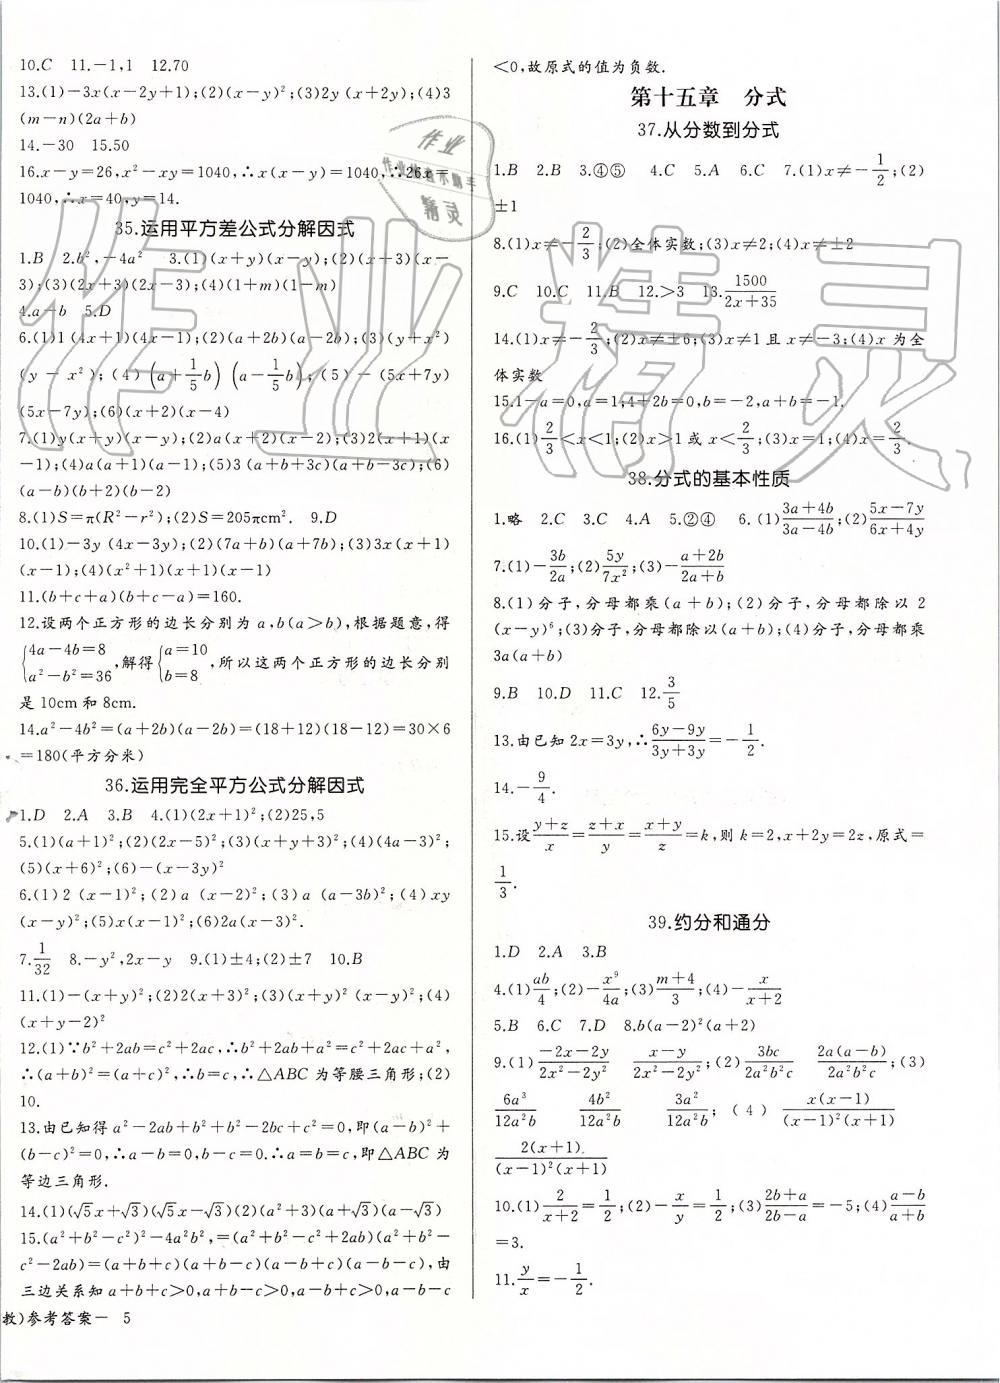 10.C　11.－1,1　12.70
13.(1)－3x(x－2y＋1);(2)(x－y)²;(3)2y (x＋2y);(4)3
(m－n)(2a＋b)
14.－30　15.50
16.x－y＝26,x²－xy＝1040,∴x(x－y)＝1040,∴26x＝
1040,∴x＝40,y＝14.
35.运用平方差公式分解因式
1.B　2.b²,－4a²　3.(1)(x＋y)(x－y);(2)(x＋3)(x－
3);(3)(2x＋3)(2x－3);(4)(1＋m)(1－m)
4.a－b　5.D
6.(1)1(4x＋1)(4x－1);(2)(a＋2b)(a－2b);(3)(y＋x²)
(y－x²);(4)(a＋1/5b)(a－1/5b);(5)－(5x＋7y)
(5x－7y);(6)(x＋2)(x－4)
7.(1)y(x＋y)(x－y);(2)a(x＋2)(x－2);(3)2(x＋1)(x
－1);(4)a(a＋1)(a－1);(5)3(a＋b＋3c)(a＋b－3c);(6)
(a－b)(b＋2)(b－2)
8.(1)S＝π(R²－r²);(2)S＝205πcm².　9.D
10.(1)－3y (4x－3y);(2)(7a＋b)(a＋7b);(3)3x(x＋1)
(x－1);(4)(x²＋1)(x＋1)(x－1)
11.(b＋c＋a)(b＋c－a)＝160.
12.设两个正方形的边长分别为 a,b(a＞b),根据题意,得
{4a－4b＝8 a²－b²＝36,解得{a＝10 b＝8,所以这两个正方形的边长分别
是 10cm 和 8cm.
14.a²－4b²＝(a＋2b)(a－2b)＝(18＋12)(18－12)＝30×6
＝180(平方分米)
36.运用完全平方公式分解因式
1.D　2.A　3.B　4.(1)(2x＋1)²;(2)25,5
5.(1)(a＋1)²;(2)(2x－5)²;(3)(x＋y＋3)²;(4)(4a－3)²;
(5)(x＋6)²;(6)－(x－3y)²
6.(1)2 (x－1)²;(2)a (x－2)²;(3)a (a－3b)²;(4)xy
(x－y)²;(5)x(x－1)²;(6)2a(x－3)².
7.1/32　8.－y²,2x－y　9.(1)±4;(2)±7　10.B
11.(1)－(x＋y)²;(2)2(x＋3)²;(3)(x＋y)² (x－y)²;(4)
(x＋y－2)²
12.(1)∵b²＋2ab＝c²＋2ac,∴b²＋2ab＋a²＝c²＋2ac＋a²,
∴(a＋b)²＝(a＋c)²,∴b＝c,∴△ABC 为等腰三角形;(2)
10.
13.由已知得 a²－2ab＋b²＋b²－2bc＋c²＝0,即(a－b)²＋
(b－c)²＝0,∴a－b＝0,b－c＝0.∴a＝b＝c,即△ABC 为
等边三角形.
14.(1)(√5x＋√3)(√5x－√3)(2)(a²＋3)(a＋√3)(a－√3)
15.(a²＋b²－c²)²－4a²b²,＝(a²＋b²－c²＋2ab)(a²＋b²－
c²－2ab)＝(a＋b＋c)(a＋b－c)(a－b＋c)(a－b－c),由
三边关系知 a＋b＋c＞0,a＋b－c＞0,a－b＋c＞0,a－b－c
教)参考答案－　5
＜0,故原式的值为负数.
第十五章　分式
37.从分数到分式
1.B　2.B　3.④⑤　4.C　5.A　6.C　7.(1)x≠－1/2;(2)
±1
8.(1)x≠－2/3;(2)全体实数;(3)x≠2;(4)x≠±2
9.C　10.C　11.B　12.＞3　13.1500/(2x＋35)
14.(1)x≠－2/3;(2)x≠±6;(3)x≠1 且 x≠－3;(4)x 为全
体实数
15.1－a＝0,a＝1,4＋2b＝0,b＝－2,a＋b＝－1.
16.(1)2/3＜x＜1;(2)x＞1 或 x＜2/3;(3)x＝1;(4)x＝2/3.
38.分式的基本性质
1.略　2.C　3.C　4.A　5.②④　6.(1)(3a＋4b)/(3a－4b);(2)(5x－7y)/(6x＋4y)
7.(1)－3b/2a;(2)5y/7x²;(3)－(a＋2b)/(2a＋b)
8.(1)分子,分母都乘(a＋b);(2)分子,分母都除以 2
(x－y)⁶;(3)分子,分母都除以(a＋b);(4)分子,分母都乘
3a(a＋b)
9.B　10.D　11.C　12.3/5
13.由已知 2x＝3y,∴(6y－9y)/(3y＋3y)＝－1/2.
14.－9/4.
15.设(y＋z)/x＝(z＋x)/y＝(x＋y)/z＝k,则 k＝2,x＋2y＝2z,原式＝
1/3.
39.约分和通分
1.D　2.A　3.B
4.(1)ab/4;(2)－x⁹/4a;(3)(m＋4)/3;(4)－x/(x＋2)
5.B　6.C　7.D　8.b(a－2)²(a＋2)
9.(1)(－2x－2y)/(2x²－2y²)　(x－y)/(2x²－2y²);(2)3bc/2a²b²c　2a(a－b)/2a²b²c;(3)
6a³/12a²b　4b²/12a²b　3a²/12a²b;(4)x(x－1)/((x－1)²(x＋1))
2(x＋1)/((x－1)²(x＋1))
10.(1)2/(x＋2)＝1/2;(2)－x/y＝1/2;(3)(2b＋a)/(2b－a)＝－5;(4)(a－b)/(a＋b)
＝3.
11.y/x＝－1/2.
作业精灵
作业
精灵